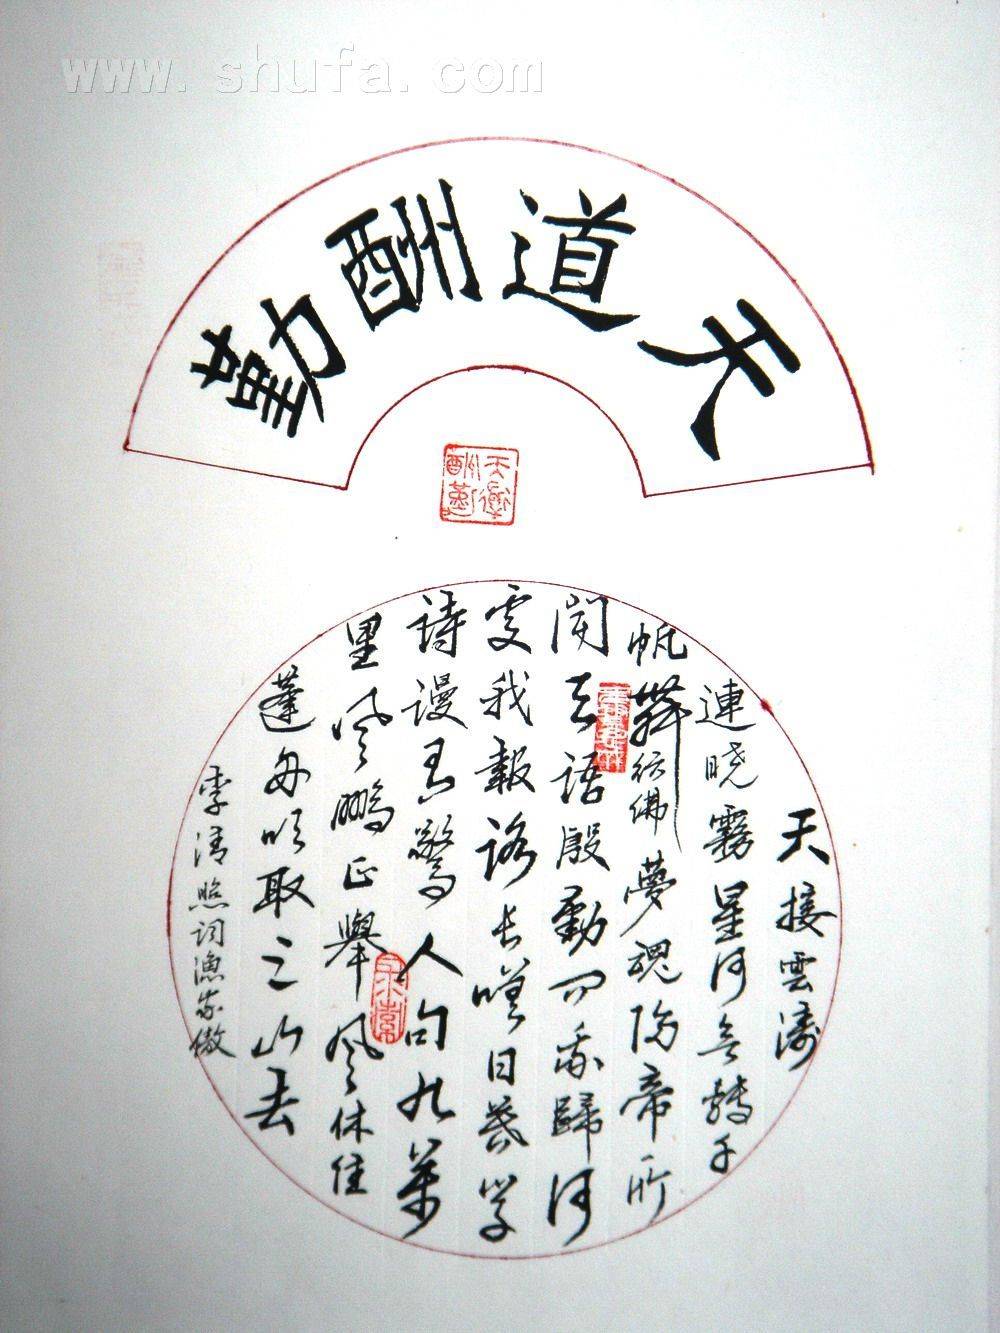 www.shufa.com
天道酬勤
天道酬勤
天接雲濤
連曉霧星河欲轉千
帆舞彷佛夢魂歸帝所
聞天語殷勤問我歸何
處我報路長嗟日暮學
詩謾有驚人句九萬
里風鵬正舉風休住
蓬舟吹取三山去
李清照詞漁家傲